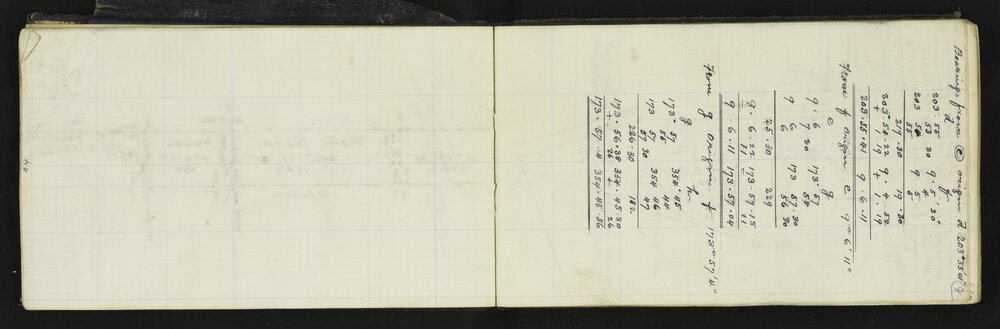 Bearings from e origin d 203°55'41"
d f
203° 55 9° 5' 30"
203 53 30 9 4
203 56 9 5
55 5
217 .30 19 .30
203° 54 .22 9 . 4 .52
+ 1 .19 + 1 .19
203 .55 .41 9 . 6 .11
From f origin e 9° 6' 11"
e g
9 . 6 173° 57
9 7 20 58
9 6 173 57 30
6 56 30
25 .30 229
9 . 6 .22 173 .57 .15
11 11
9 . 6 .11 173 .57 .04
From g origin f 173° 57' 4"
f h
173° 57 354° 45
55 44
173 57 354 46
57 30 47
226 .30 182
173 .56 .38 354 .45 .30
+ 26 + 26
173 .57 .4 354 .45 .56